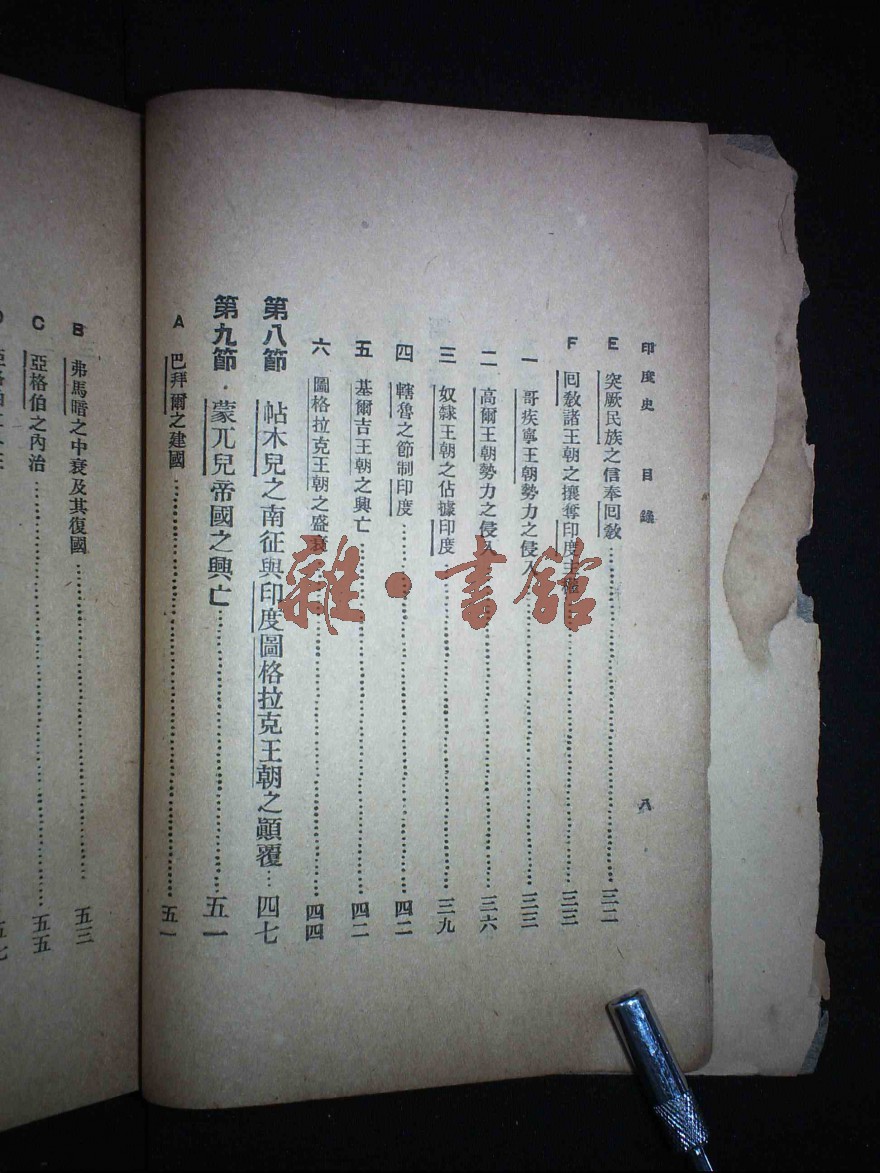 印度史 目錄 八
E 突厥民族之信奉回敎 三二
F 回敎諸王朝之攘奪印度主權 三三
一 哥疾寧王朝勢力之侵入 三三
二 高爾王朝勢力之侵入 三六
三 奴隸王朝之佔據印度 三九
四 轄魯之節制印度 四二
五 基爾吉王朝之興亡 四二
六 圖格拉克王朝之盛衰 四四
第八節 帖木兒之南征與印度圖格拉克王朝之顚覆 四七
第九節 蒙兀兒帝國之興亡 五一
A 巴拜爾之建國 五一
B 弗馬暗之中衰及其復國 五三
C 亞格伯之內治 五五
雜·書館